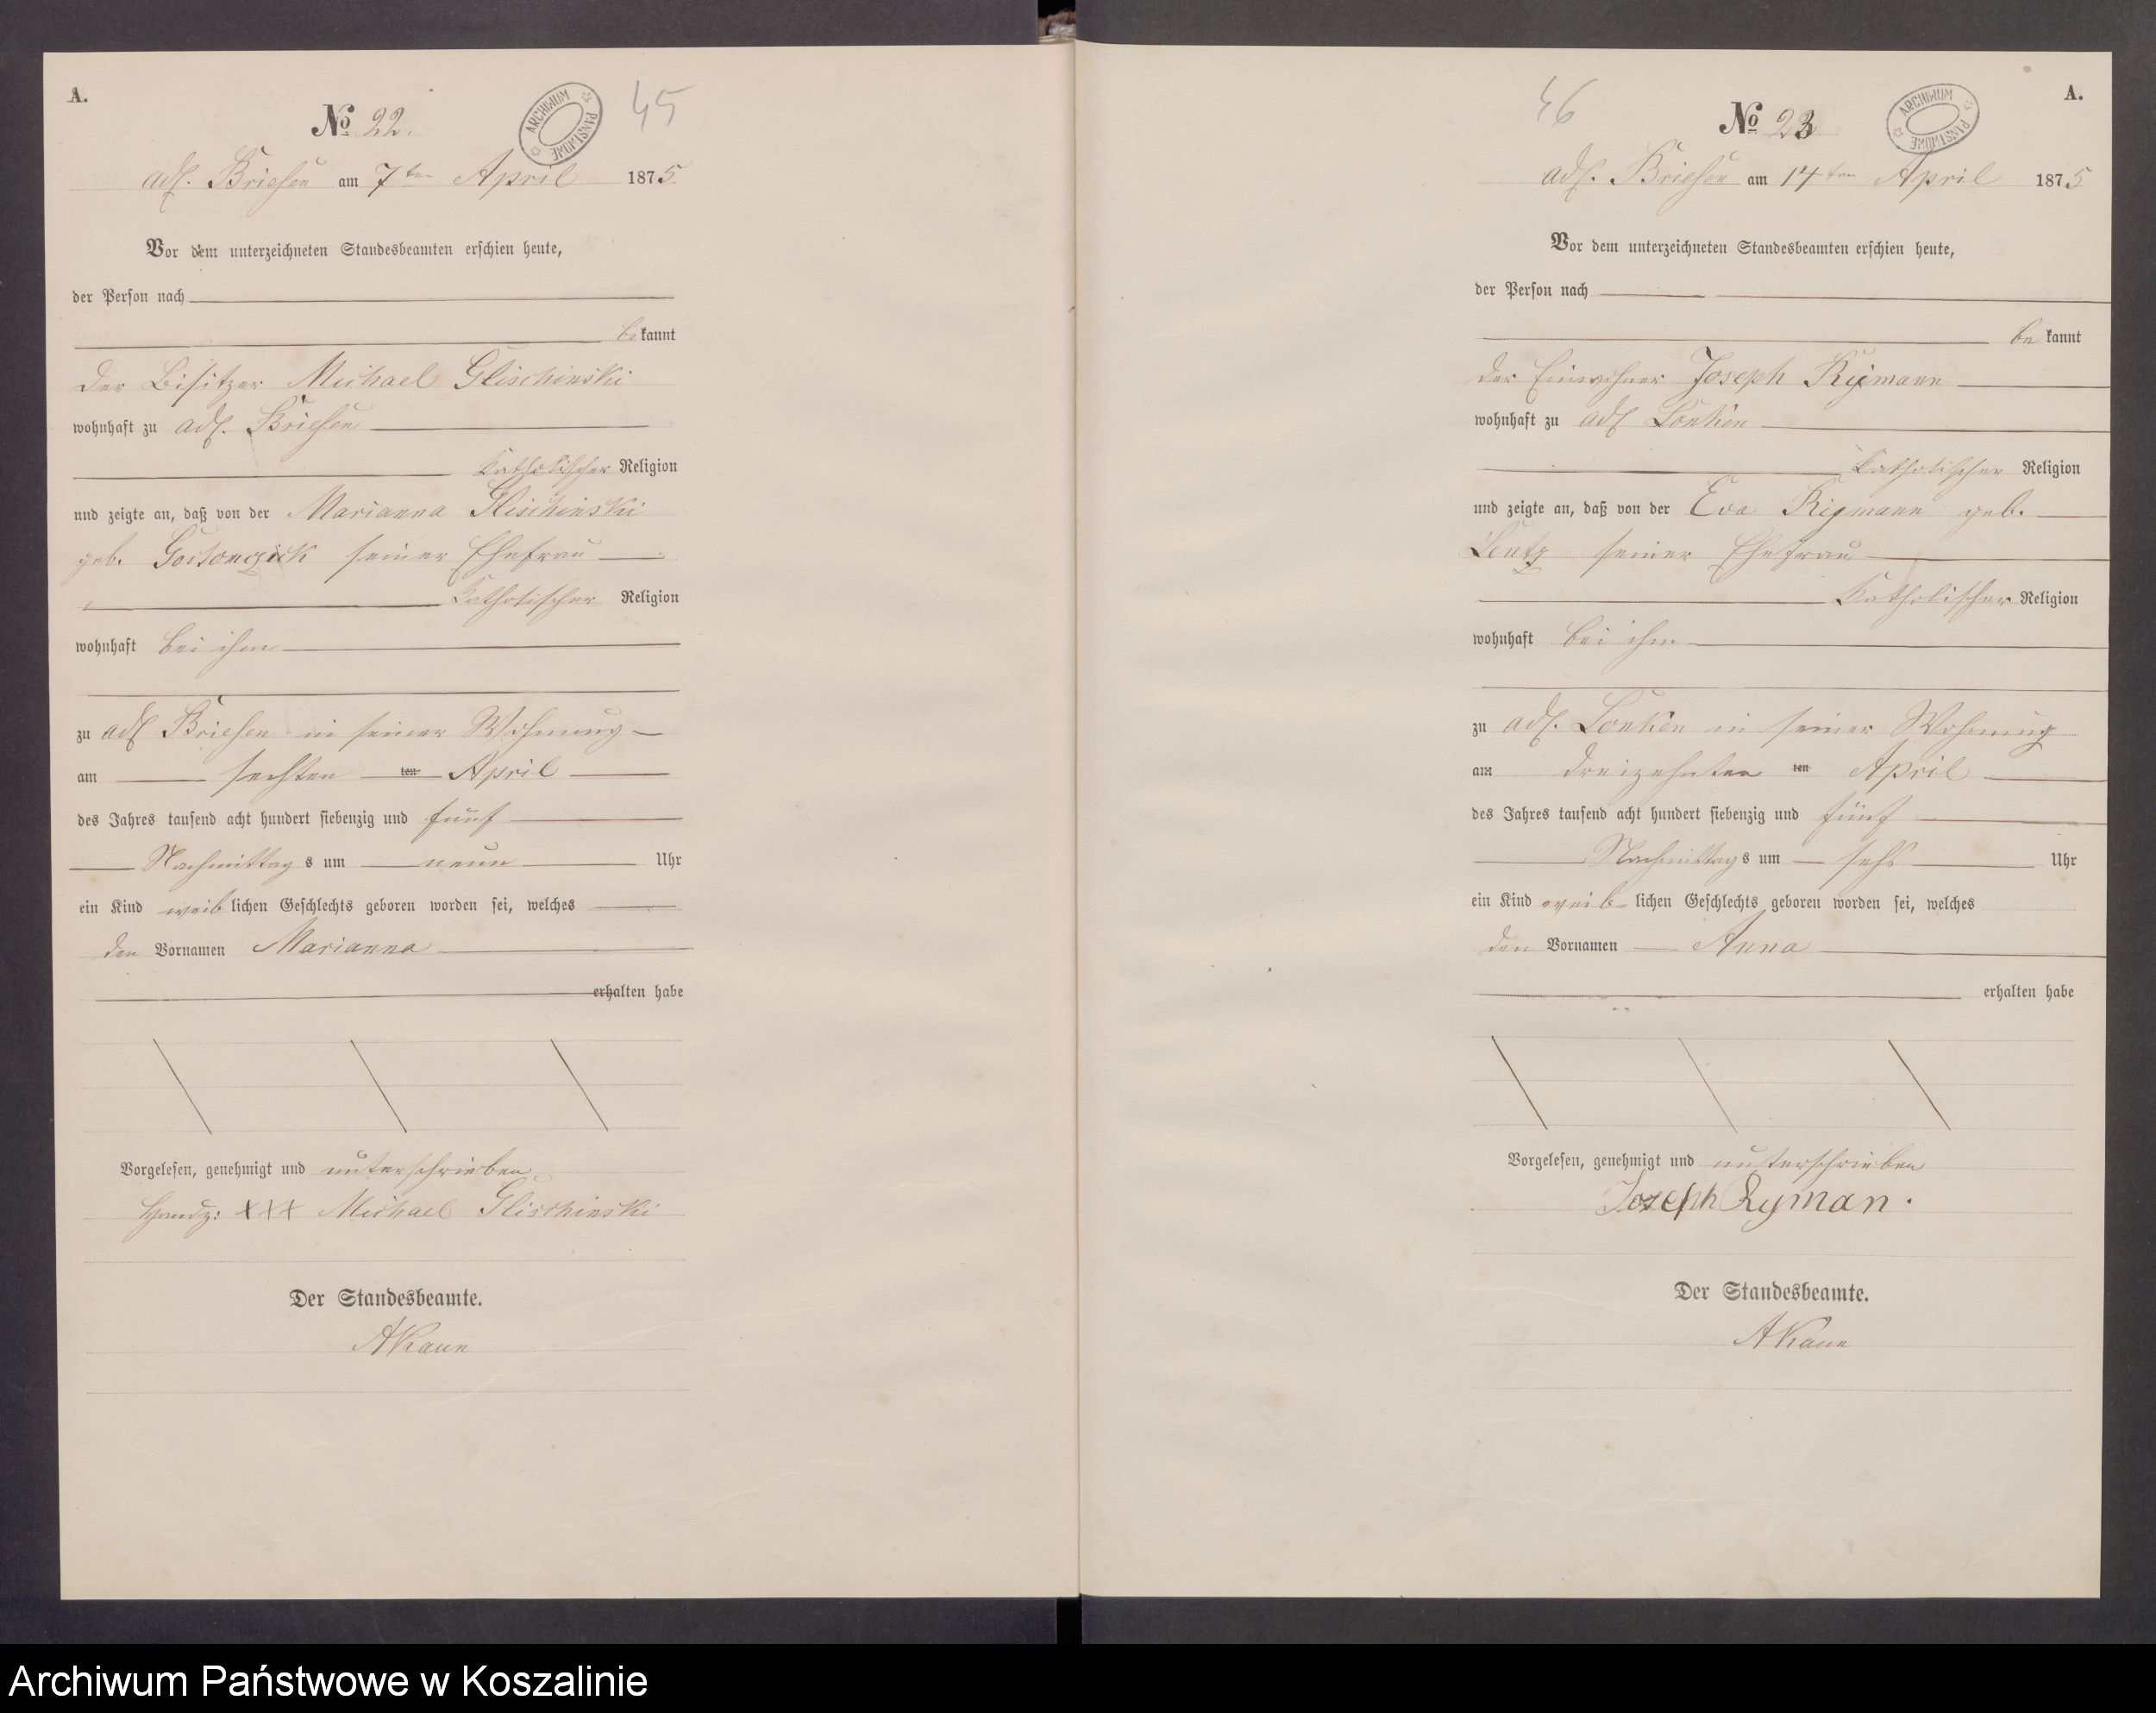 A.
45
No 22.
ARCHIWUM PAŃSTWOWE
adl. Briesen am 7ten April 1875.
Vor dem unterzeichneten Standesbeamten erschien heute,
der Person nach
bekannt
der Besitzer Michael Glischinski
wohnhaft zu adl. Briesen
Katholischer Religion
und zeigte an, daß von der Marianna Glischinski
geb. seiner Ehefrau
Katholischer Religion
wohnhaft bei ihm
zu adl Briesen in seiner Wohnung
am sechsten ten April
des Jahres tausend acht hundert siebenzig und fünf
Nachmittags um neun Uhr
ein Kind weiblichen Geschlechts geboren worden sei, welches
den Vornamen Marianna
erhalten habe
Vorgelesen, genehmigt und unterschrieben
Handz: XXX Michael Glischinski
Der Standesbeamte.
AKaun
A.
46
No 23
ARCHIWUM PAŃSTWOWE
adl. Briesen am 14ten April 1875
Vor dem unterzeichneten Standesbeamten erschien heute,
der Person nach
bekannt
der Einwohner Joseph Rymann
wohnhaft zu adl Lonken
Katholischer Religion
und zeigte an, daß von der Eva Rymann geb.
seiner Ehefrau
Katholischer Religion
wohnhaft bei ihm
zu adl. Lonken in seiner Wohnung
am dreizehnten ten April
des Jahres tausend acht hundert siebenzig und fünf
Nachmittags um sechs Uhr
ein Kind weiblichen Geschlechts geboren worden sei, welches
den Vornamen Anna
erhalten habe
Vorgelesen, genehmigt und unterschrieben
Joseph Ryman.
Der Standesbeamte.
AKaun
Archiwum Państwowe w Koszalinie